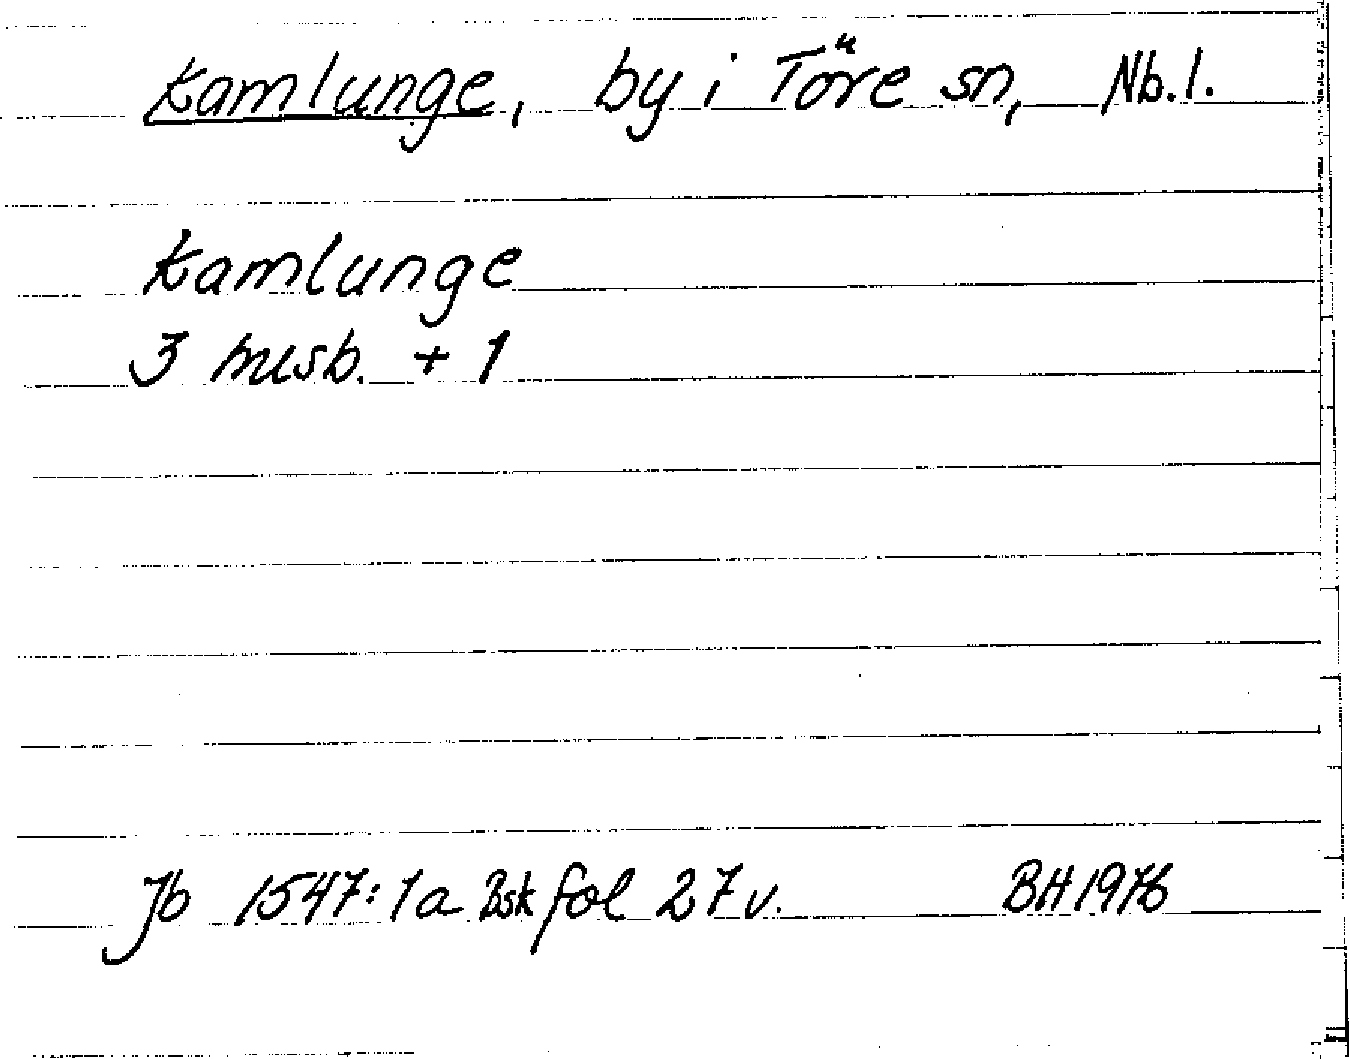 Kamlunge, by i Töre sn, Nb.l.
Kamlunge
3 husb. + 1
Jb 1547:1a Bsk fol 27v. BH 1976